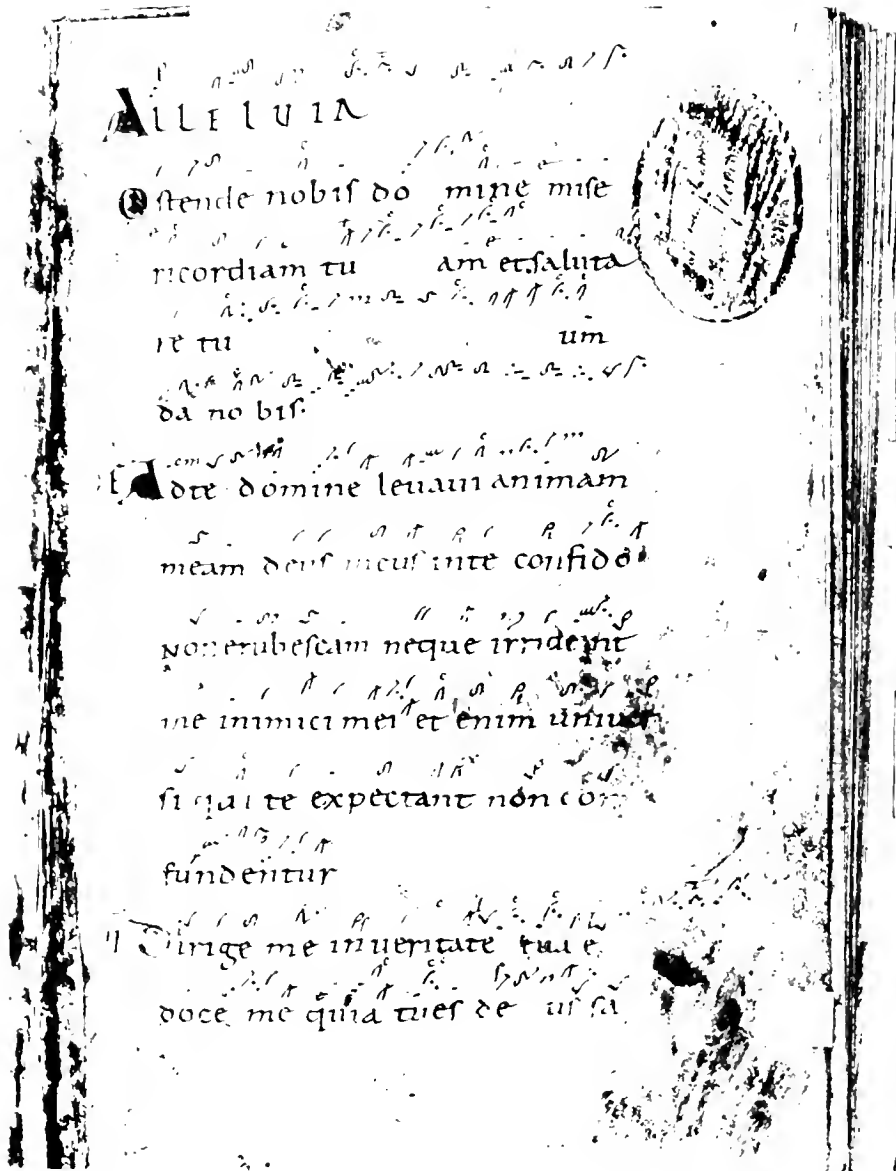 ALLELUIA
Ostende nobis do mine mise
ricordiam tu am et saluta
re tu um
da no bis.
Ad te domine leuaui animam
meam deus meus in te confido
Non erubescam neque irrideant
me inimici mei et enim uniuer
si qui te expectant non con
fundentur
II Dirige me in ueritate tua e
doce me quia tu es de us sa